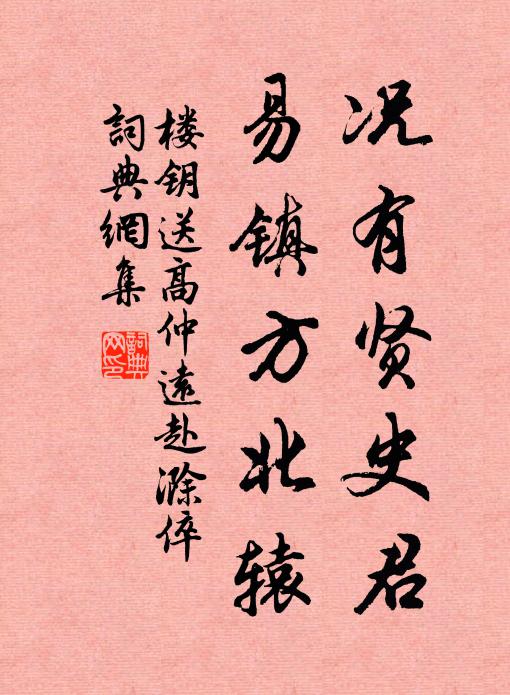 况有贤史君
易镇方北辕
楼钥送高仲遠赴滁倅
詞典網集
詞典网印